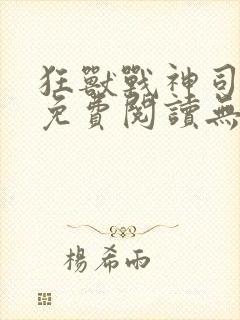 狂獸戰神司
免費閱讀無
楊希雨